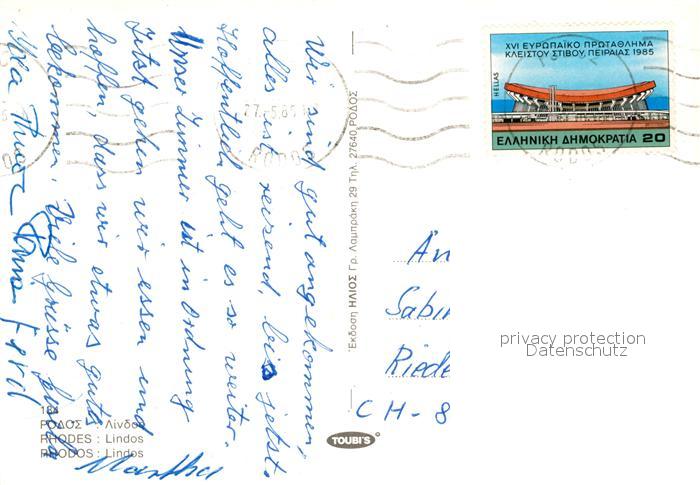 Wir sind gut angekommen,
alles ist reizend, bis jetzt.
Hoffentlich geht es so weiter.
Unser Zimmer ist in Ordnung
Jetzt gehen wir essen und
hoffen, dass wir etwas gutes
bekommen. Viele Grüsse
Martha
XVI ΕΥΡΩΠΑΪΚΟ ΠΡΩΤΑΘΛΗΜΑ
ΚΛΕΙΣΤΟΥ ΣΤΙΒΟΥ, ΠΕΙΡΑΙΑΣ 1985
HELLAS
ΕΛΛΗΝΙΚΗ ΔΗΜΟΚΡΑΤΙΑ 20
Έκδοση ΗΛΙΟΣ Γρ. Λαμπράκη 29 Τηλ. 27640 ΡΟΔΟΣ
Sabin
Riede
CH-8
privacy protection
Datenschutz
184
ΡΟΔΟΣ : Λίνδος
RHODES : Lindos
RHODOS : Lindos
TOUBI'S